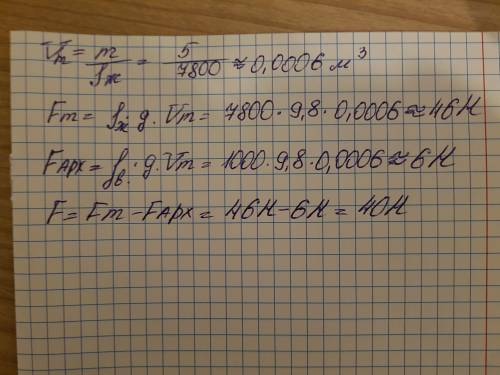 Vт = m/ρж = 5/7800 ≈ 0,0006 м³
Fт = ρж · g · Vт = 7800 · 9,8 · 0,0006 ≈ 46Н
FАрх = ρв · g · Vт = 1000 · 9,8 · 0,0006 ≈ 6Н
F = Fт - FАрх = 46Н - 6Н = 40Н